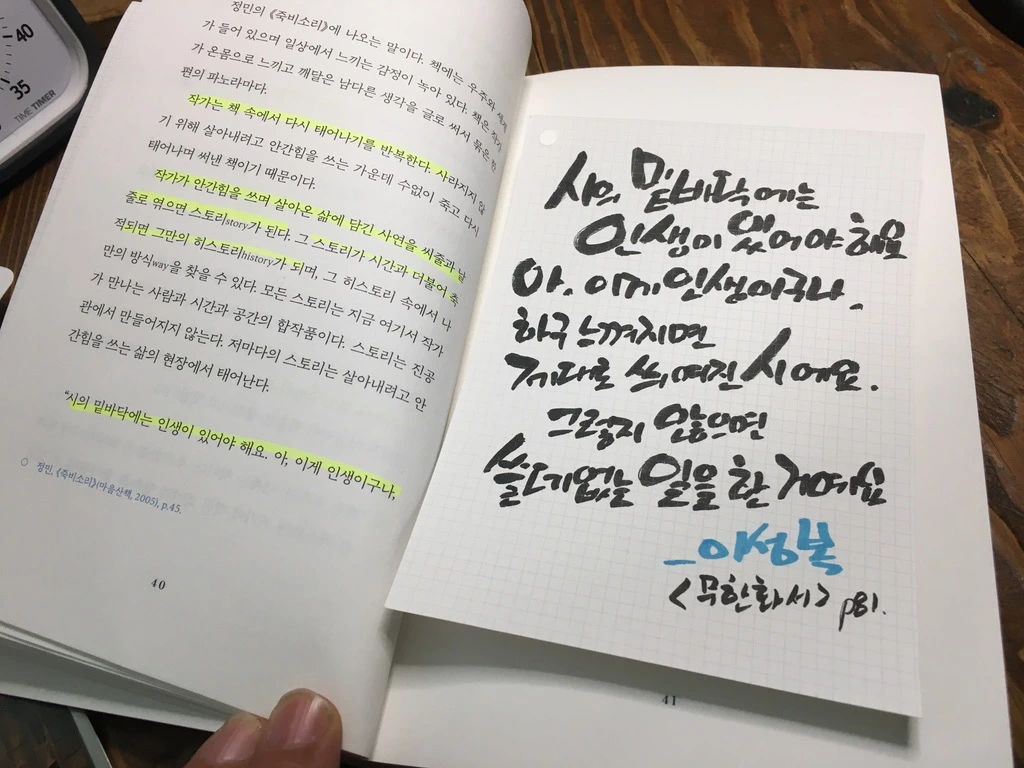 40
35
TIME TIMER
정민의 《죽비소리》에 나오는 말이다. 책에는 우주와 세계
가 들어 있으며 일상에서 느끼는 감정이 녹아 있다. 책은 작가
가 온몸으로 느끼고 깨달은 남다른 생각을 글로 써서 묶은 한
편의 파노라마다.
작가는 책 속에서 다시 태어나기를 반복한다. 사라지지 않
기 위해 살아내려고 안간힘을 쓰는 가운데 수없이 죽고 다시
태어나며 써낸 책이기 때문이다.
작가가 안간힘을 쓰며 살아온 삶에 담긴 사연을 씨줄과 날
줄로 엮으면 스토리story가 된다. 그 스토리가 시간과 더불어 축
적되면 그만의 히스토리history가 되며, 그 히스토리 속에서 나
만의 방식way을 찾을 수 있다. 모든 스토리는 지금 여기서 작가
가 만나는 사람과 시간과 공간의 합작품이다. 스토리는 진공
관에서 만들어지지 않는다. 저마다의 스토리는 살아내려고 안
간힘을 쓰는 삶의 현장에서 태어난다.
“시의 밑바닥에는 인생이 있어야 해요. 아, 이게 인생이구나,
정민, 《죽비소리》(마음산책, 2005), p.45.
40
시의 밑바닥에는
인생이 있어야 해요
아. 이게 인생이구나.
하구 느껴지면
제대로 씌여진 시에요.
그렇지 않으면
쓸데없는 일을 한 거예요
_이성복
<무한화서> p81.
41